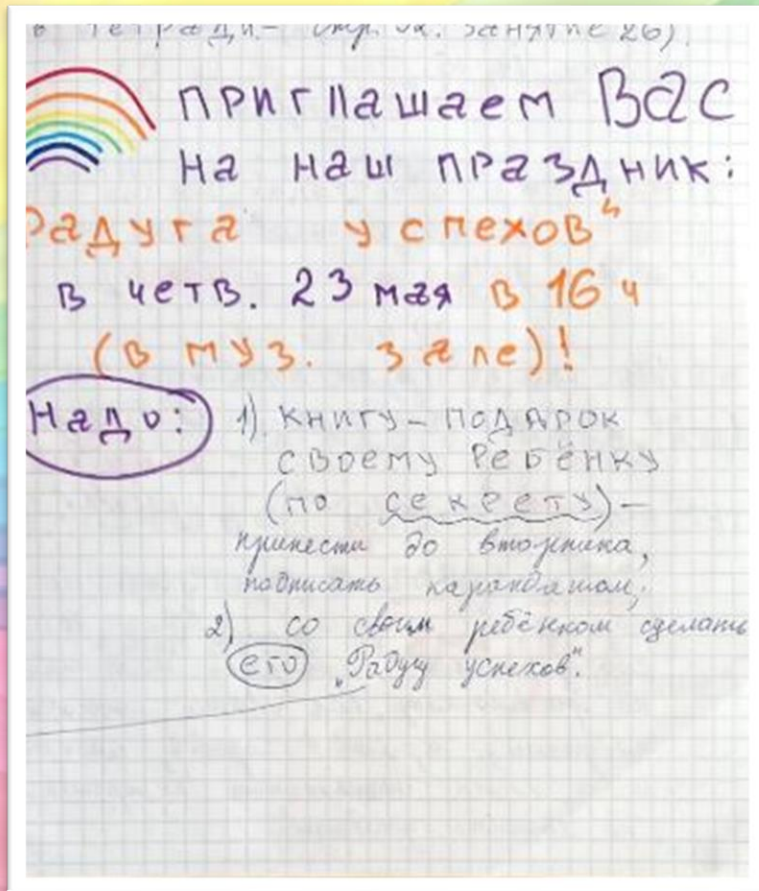 в тетради - стр. 52. занятие 26)
ПРИГЛашаем Вас
На наш ПРаЗДник:
Радуга успехов"
в четв. 23 мая в 16 ч
(в муз. зале)!
Надо: 1) КНИГУ - ПОДАРОК
СВОЕМУ РЕБЁНКУ
(ПО СЕКРЕТУ) -
принести до вторника,
подписать карандашом;
2) со своим ребёнком сделать
его „Радугу успехов".